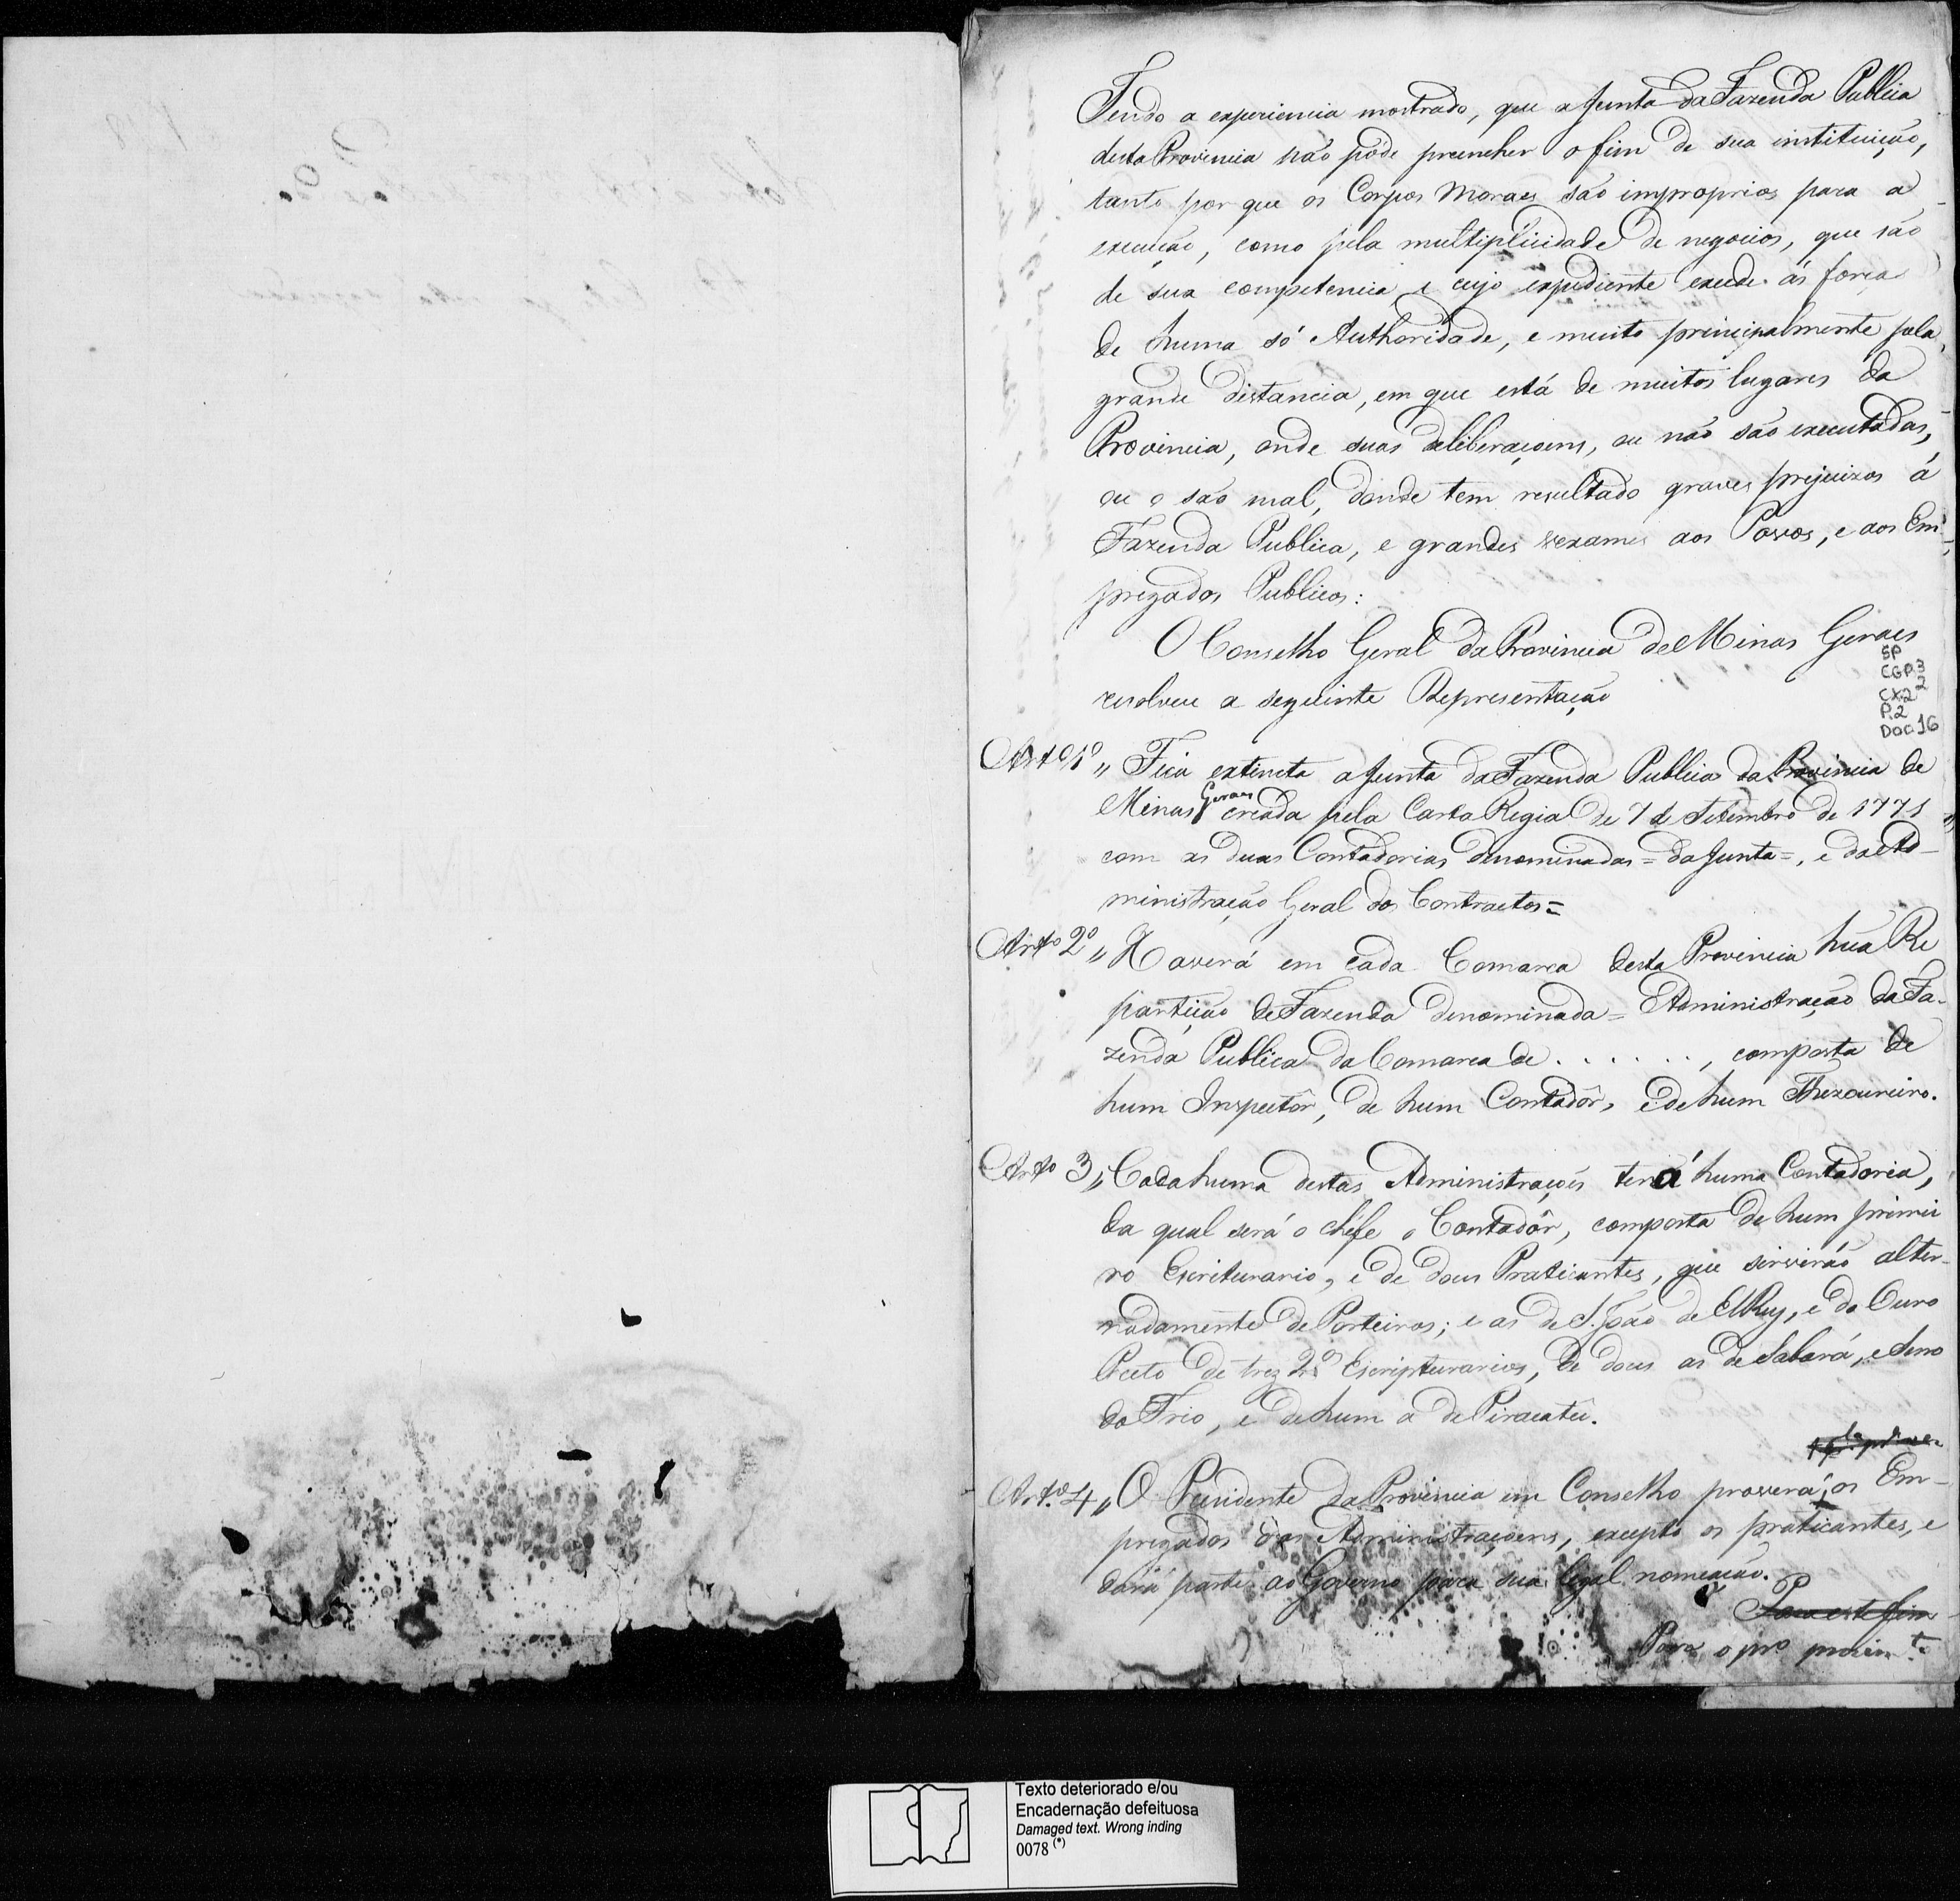 Tendo a experiencia mostrado, que a Junta da Fazenda Publica
desta Provincia não póde preencher o fim de sua instituição,
tanto por que os Corpos Moraes são improprios para a
execução, como pela multiplicidade de negocios, que são
de sua competencia e cujo expediente excede ás força
de huma só Authoridade, e muito principalmente pela
grande distancia, em que está de muitos lugares da
Provincia, onde suas deliberaçoens, ou não são executadas,
ou o são mal, donde tem resultado graves prejuizos á
Fazenda Publica, e grandes vexames aos Povos, e aos Em-
pregados Publicos:
O Conselho Geral da Provincia de Minas Geraes
SP
CGP.3
resolveu a seguinte Representação
CX.2 2
P.2
DOC.16
Arto 1o „ Fica extincta a Junta da Fazenda Publica da Provincia de
Minas Geraes creada pela Carta Regia de 7 de Setembro de 1771
com as duas Contadorias denominadas = da Junta =, e da Ad-
ministração Geral dos Contractos =
Arto 2o „ Haverá em cada Comarca desta Provincia hũa Re
partição de Fazenda denominada = Administração da Fa-
zenda Publica da Comarca de . . . . . . , composta de
hum Inspectôr, de hum Contadôr, e de hum Thezoureiro.
Arto 3 „ Cada huma destas Administraçoẽs terá huma Contadoria,
da qual será o chéfe o Contadôr, composta de hum primei
ro Escriturario, e de dous Praticantes, que servirão alter-
nadamente de Porteiros; e as de S. João de ElRey, e do Ouro
Preto de trez 2os Escripturarios, de dous as de Sabará, e Serro
do Frio, e de hum a de Piracatu.
Arto 4 „ O Presidente da Provincia em Conselho proverá os Em-
pregados das Administraçoens, excepto os praticantes, e
dará parte ao Governo para sua legal nomeação.
Para este fim
Para o pro provim.to
Texto deteriorado e/ou
Encadernação defeituosa
Damaged text. Wrong inding
0078 (*)